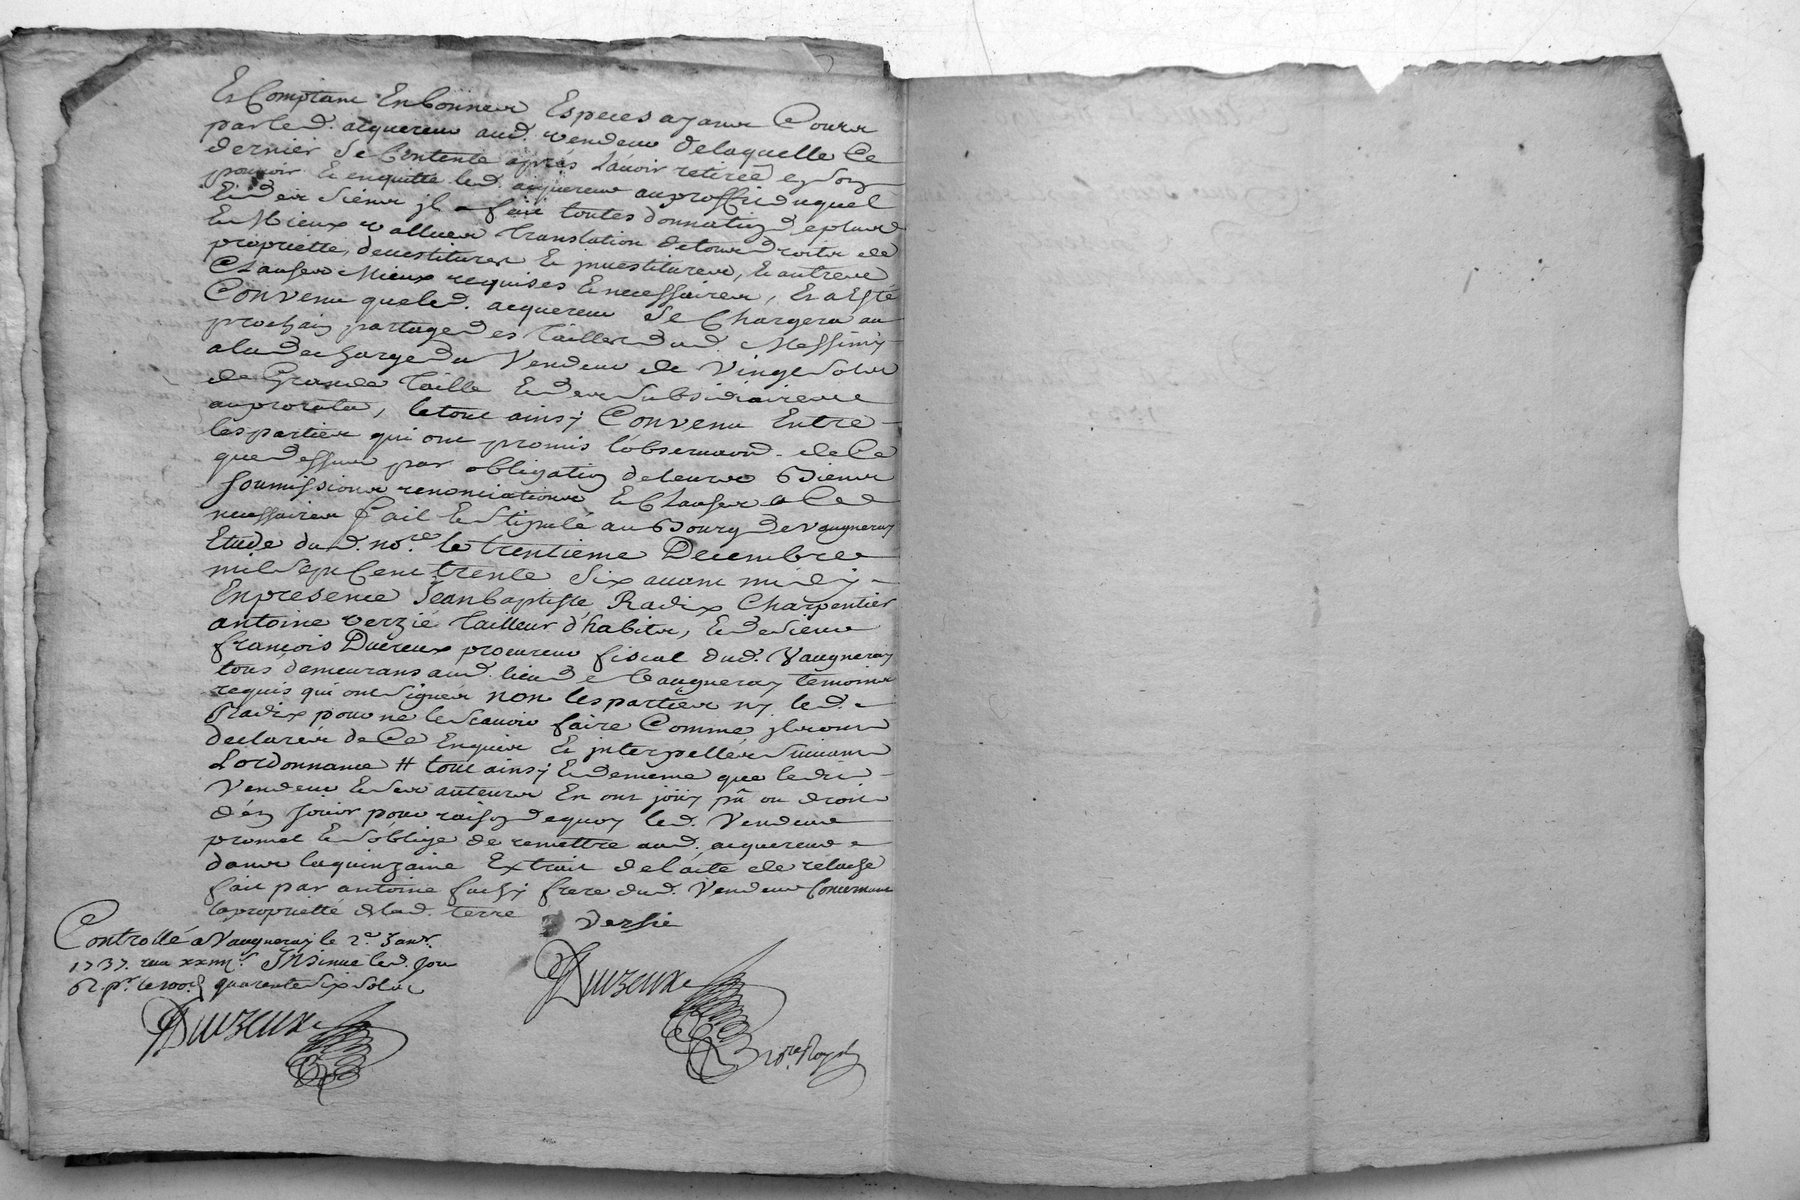 Et Comptant En bonnes Especes ayant Cours
par led. acquereur aud. vendeur de laquelle Ce
dernier Se Contente après L'avoir retirée
pouvoir Et en quitte led. acquereur au proffit duquel
Et des Siens jl fait toutes donnation
Et Mieux vallues translation de tous droits de
proprietté, devestitures Et jnvestitures, Et autres
Clauses Mieux requises Et necessaires, Et a Esté
Convenu que led. acquereur Se Chargera au
prochain partage des tailles dud. Messimy
a la decharge du Vendeur de Vingt Sols
de Grande taille Et des Subsidiaires
au prorata, le tout ainsy Convenu Entre
les parties qui ont promis l'observaon. de Ce
que dessus par obligation de leurs Biens
soumissions renonciations Et Clauses a Ce
necessaires fait Et Stipulé au Bourg de Vaugneray
Etude dud. nore. le trentieme Decembre
mil Sept Cent trente Six avant midy
En presence Jean Baptiste Radix Charpentier
antoine verzié tailleur d'habits, Et de Sieur
françois Ducreux procureur fiscal dud. Vaugneray
tous demeurans aud. lieu de Vaugneray temoins
requis qui ont Signés non les parties ny led.
Radix pour ne le Scavoir faire Comme jls ont
declarer de Ce Enquis Et jnterpellés Suivant
Lordonnance # tout ainsy Et de meme que ledit
Vendeur Et Ses auteurs En ont joüy pû ou droit
d'én jouir pour raison de quoy led. Vendeur
promet Et S'oblige de remettre aud. acquereur
dans la quinzaine Extrait de l'acte de relache
fait par antoine frere dud. Vendeur Concernant
la proprietté de lad. terre
Versie
Controllé a Vaugneray le 2e Janv.
1737. reçu Insinué led. Jour
quarente Six Sols
Duvzeux
Duvzeux
nore. Royal